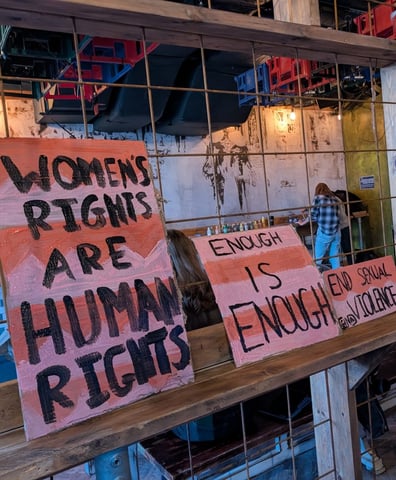 WOMEN'S
RIGHTS
ARE
HUMAN
RIGHTS
ENOUGH
IS
ENOUGH
END SEXUAL
VIOLENCE